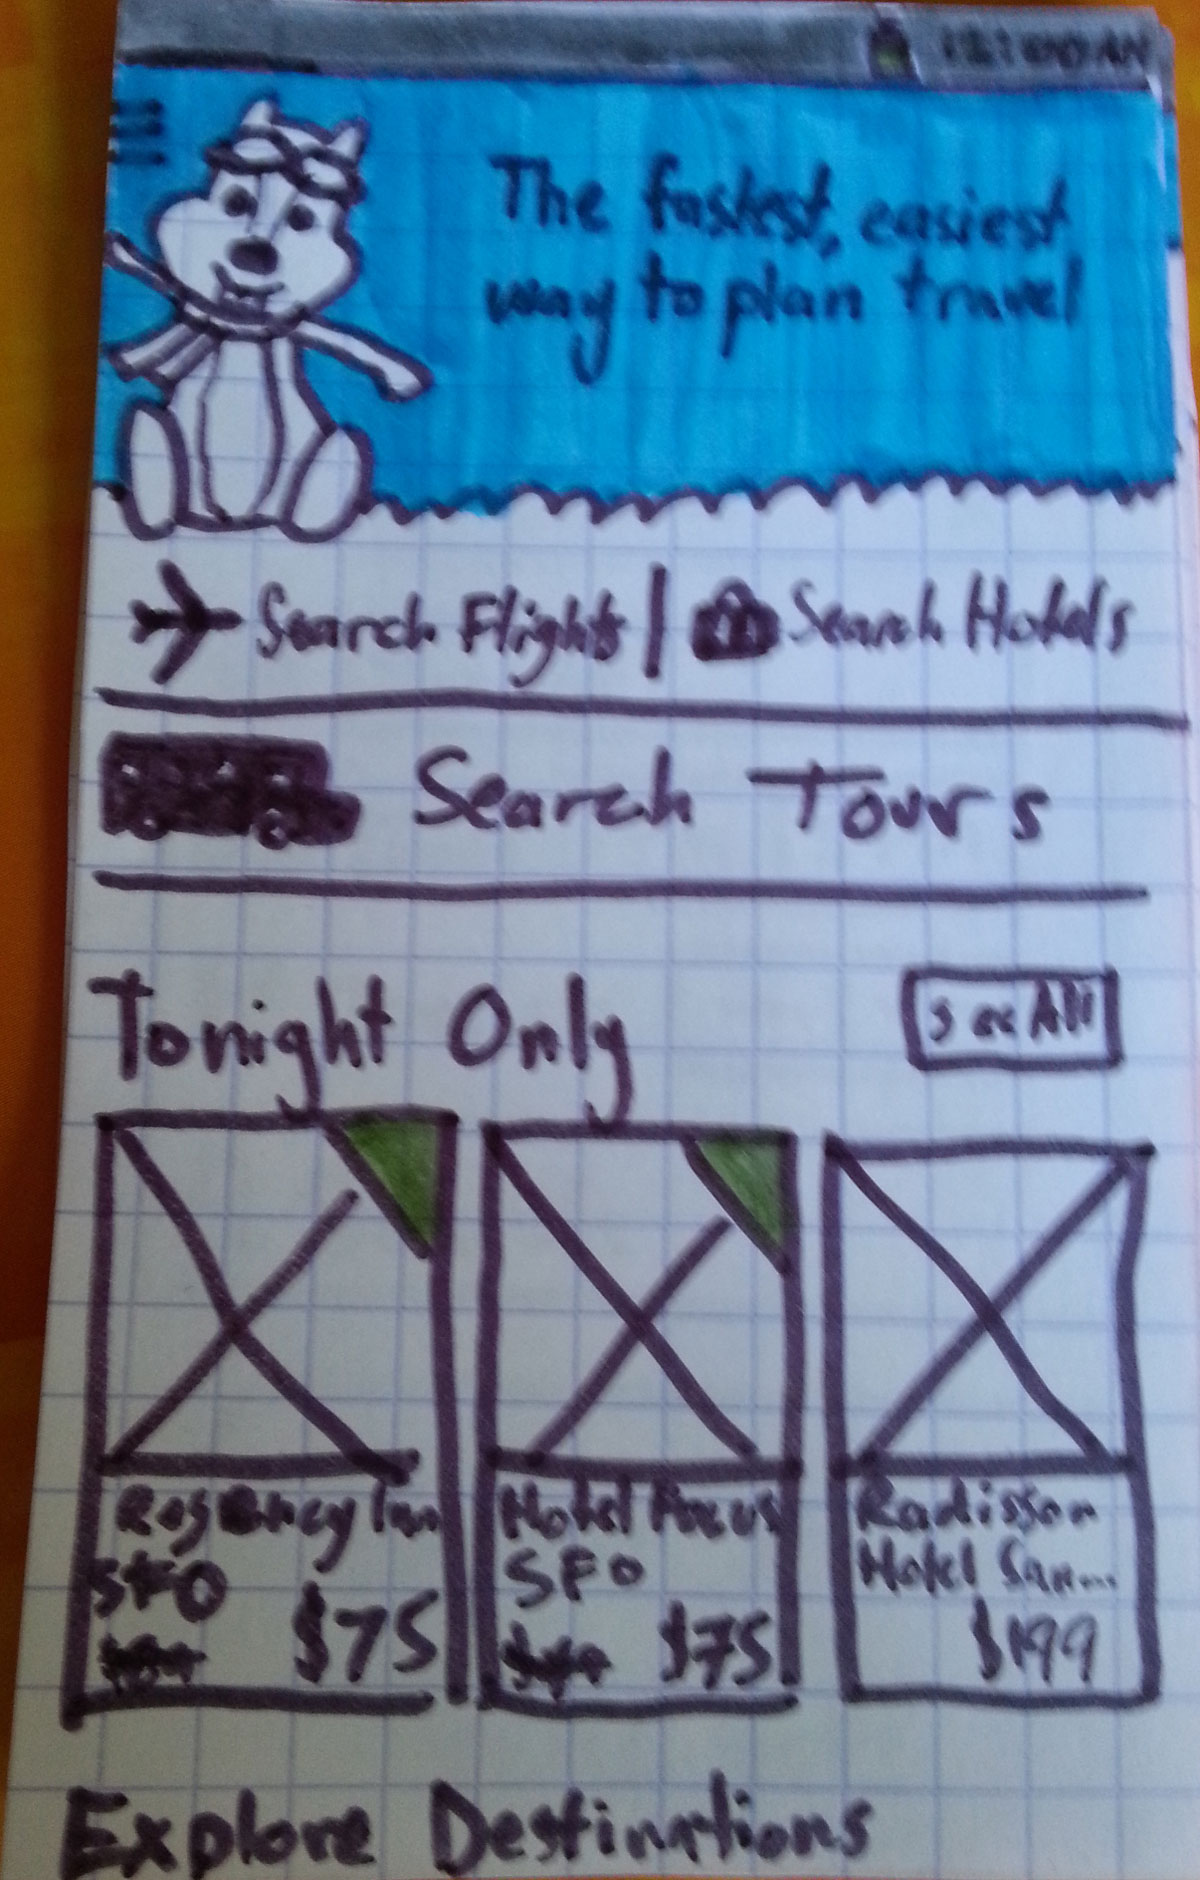 The fastest, easiest
way to plan travel
Search Flights | Search Hotels
Search Tours
Tonight Only
See All
Regency Inn
SFO
$75
Hotel Focus
SFO
$75
Radisson
Hotel San...
$199
Explore Destinations